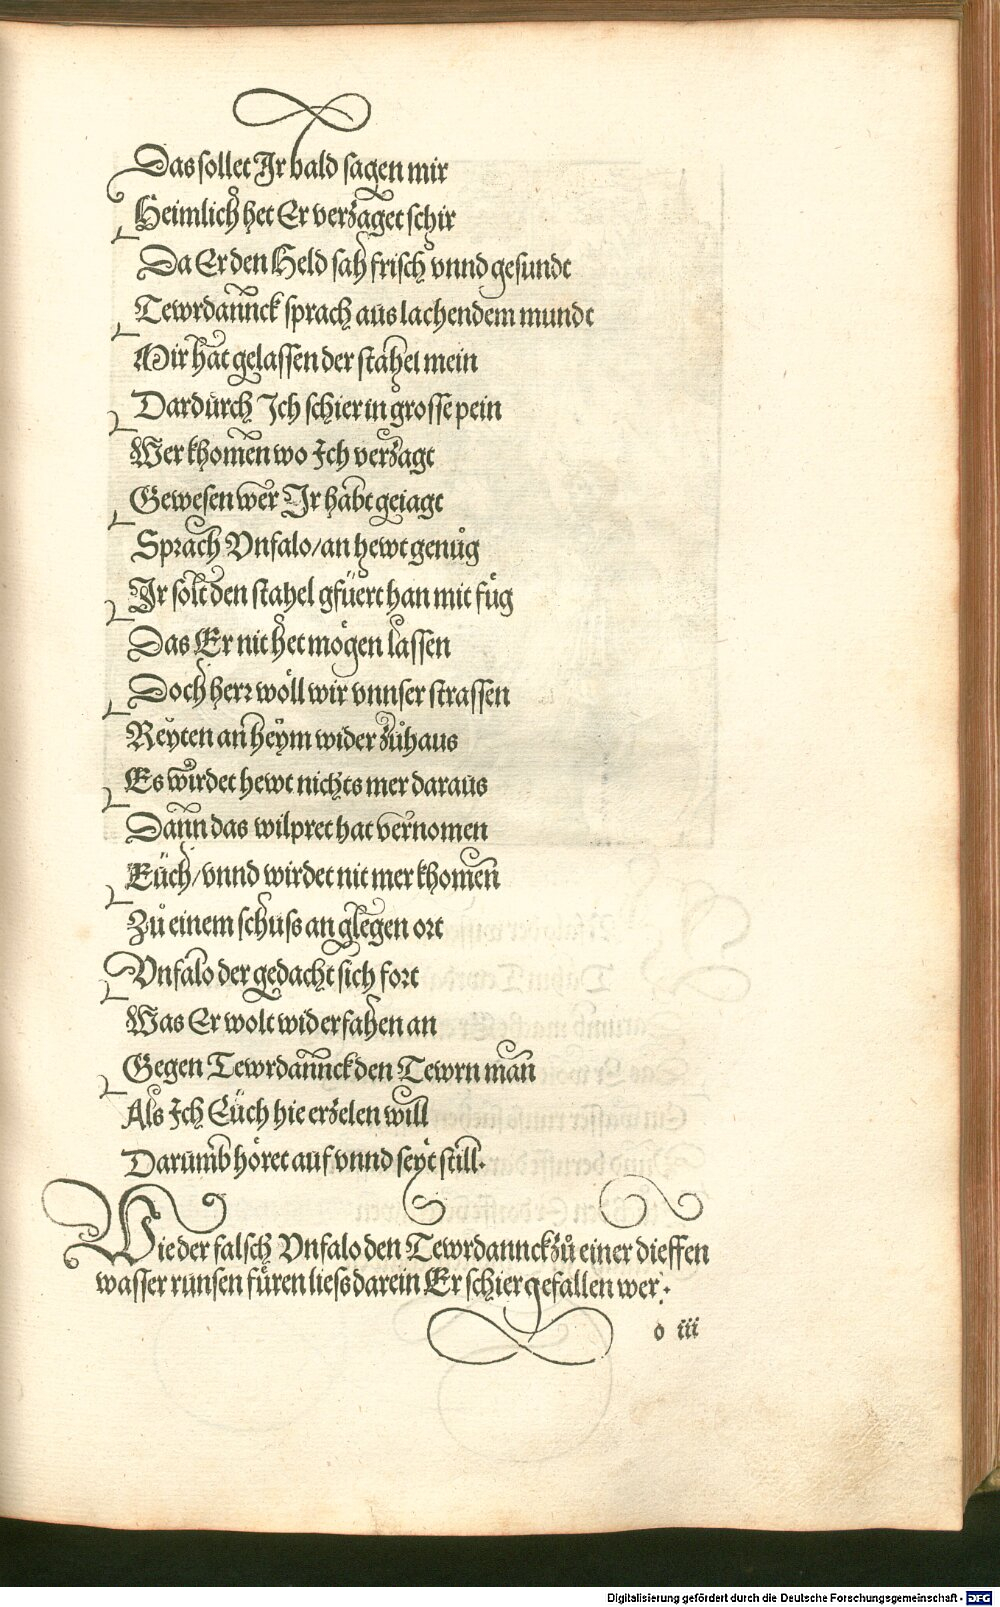 Das sollet Ir bald sagen mir
Heimlich het Er verzaget schir
Da Er den Held sah frisch vnnd gesundt
Tewrdannck sprach aus lachendem mundt
Mir hat gelassen der stahel mein
Dardurch Ich schier in grosse pein
Wer khomen wo Ich verzagt
Gewesen wer Ir habt geiagt
Sprach Vnfalo / an hewt genůg
Ir solt den stahel gfüert han mit fůg
Das Er nit het mögen lassen
Doch herr wöll wir vnnser strassen
Reyten an heym wider zůhaus
Es wirdet hewt nichts mer daraus
Dann das wilpret hat vernomen
Eüch / vnnd wirdet nit mer khomen
Zů einem schuss an glegen ort
Vnfalo der gedacht sich fort
Was Er wolt widerfahen an
Gegen Tewrdannck den Tewrn man
Als Ich Eüch hie erzelen will
Darumb höret auf vnnd seyt still.
Wie der falsch Vnfalo den Tewrdannck zů einer dieffen
wasser runsen füren liess darein Er schier gefallen wer.
o iii
Digitalisierung gefördert durch die Deutsche Forschungsgemeinschaft - DFG